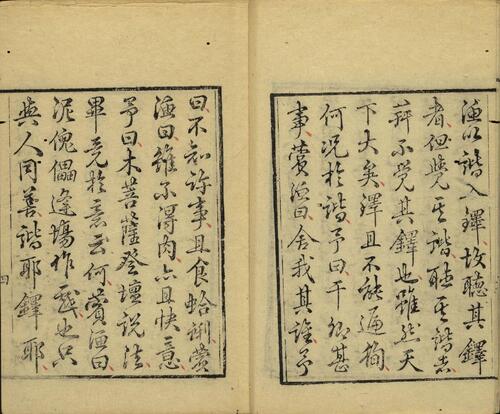 漁以諧入鐸故聽其鐸
者但覺其諧聽其諧者
并不覺其鐸也雖然天
下大矣鐸且不能遍徇
何況於諧予曰干卿甚
事薲漁曰舍我其誰予
曰不知許事且食蛤蜊薲
漁曰雖不得肉亦且快意
予曰木菩薩登壇說法
畢竟於意云何薲漁曰
泥傀儡逢場作戲也只
與人同善諧耶鐸耶
四